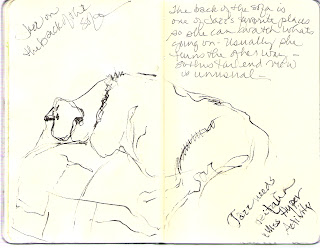 Jazz on
the back of the
Sofa
The back of the sofa is
one of Jazz's favorite places
so she can watch what's
going on. Usually she
turns the other way —
so this tail end view
is unusual —
Jazz needs